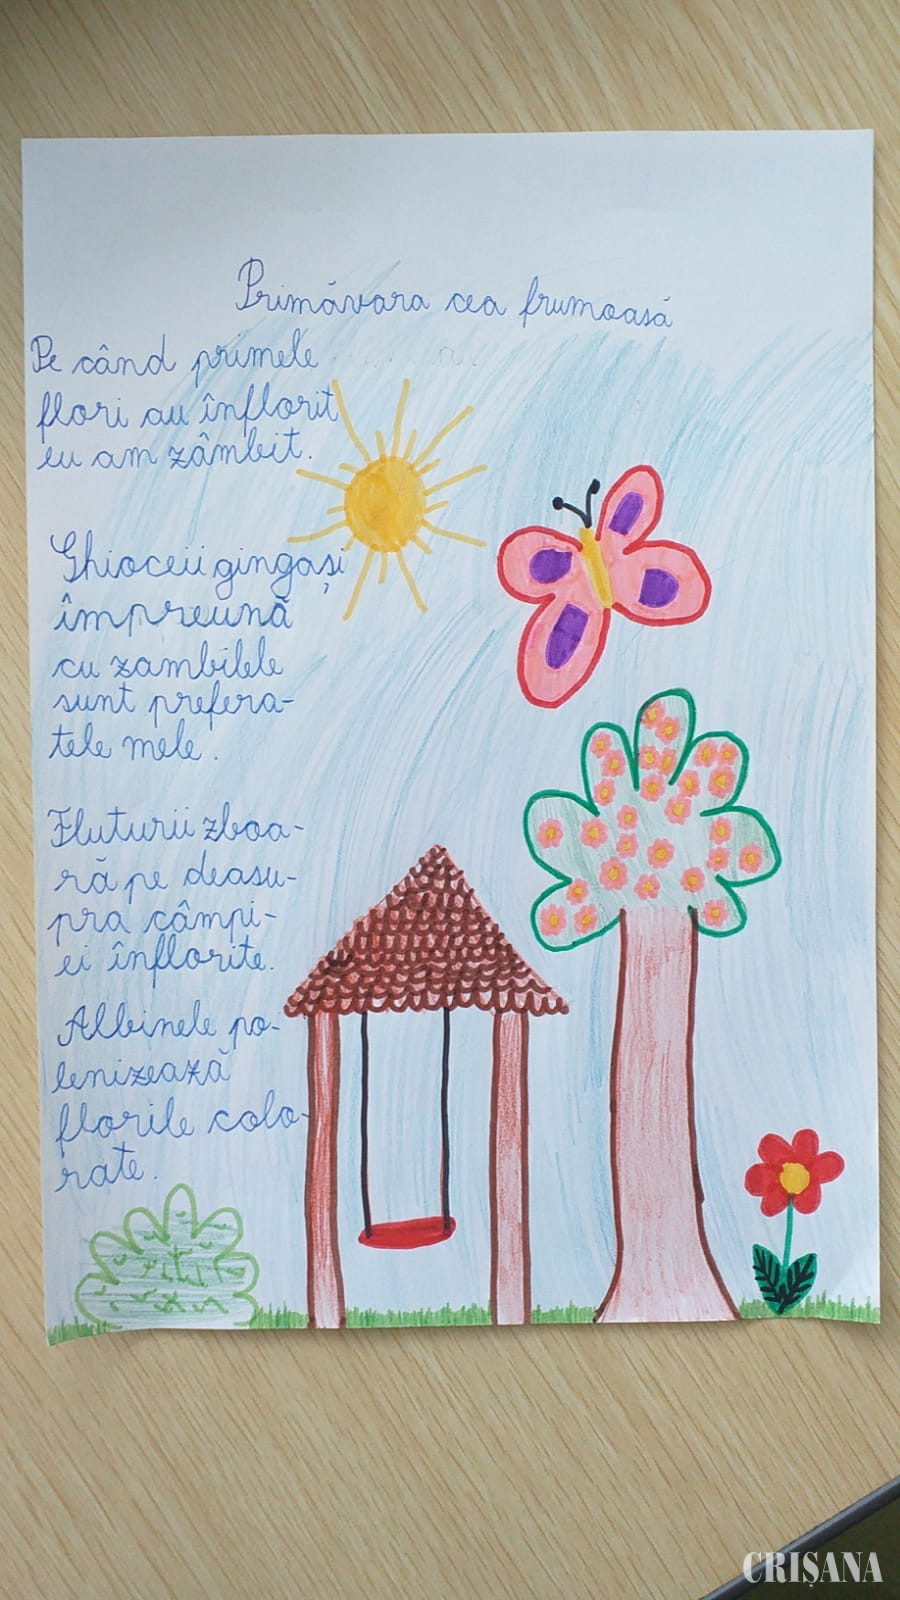 Primăvara cea frumoasă
Pe când primele
flori au înflorit
eu am zâmbit.
Ghioceii gingași
împreună
cu zambilele
sunt prefera-
tele mele.
Fluturii zboa-
ră pe deasu-
pra câmpi-
ei înflorite.
Albinele po-
lenizează
florile colo-
rate.
CRIȘANA